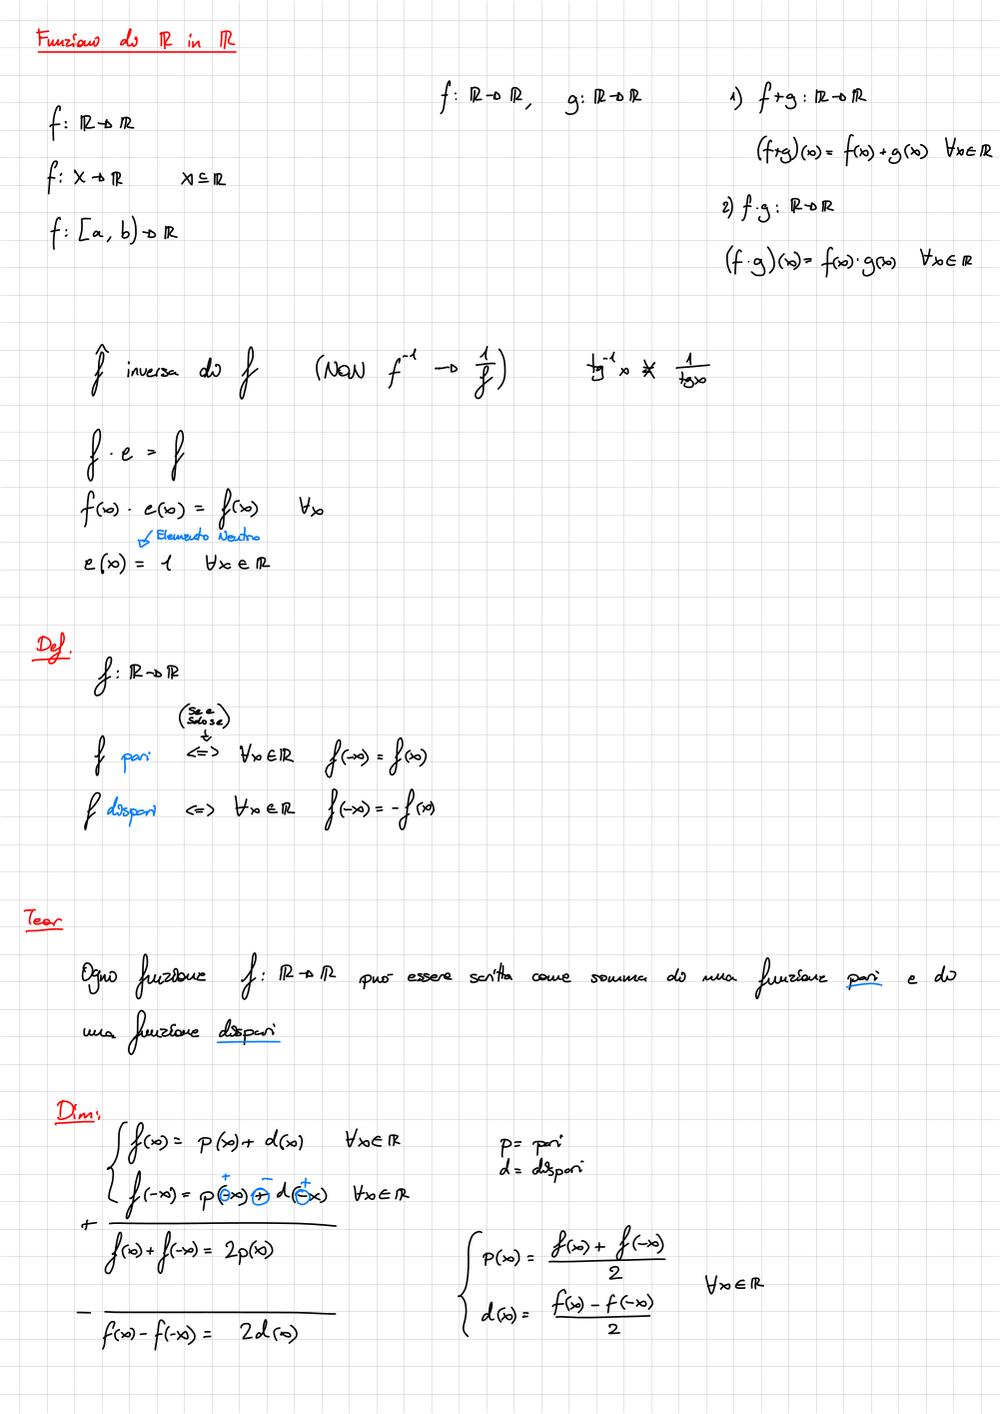 Funzioni di ℝ in ℝ
f: ℝ → ℝ
f: X → ℝ    X ⊆ ℝ
f: [a, b) → ℝ
f: ℝ → ℝ,    g: ℝ → ℝ
1) f+g : ℝ → ℝ
(f+g)(x) = f(x) + g(x)    ∀x ∈ ℝ
2) f·g : ℝ → ℝ
(f·g)(x) = f(x)·g(x)    ∀x ∈ ℝ
f̂ inversa di f    (NON f⁻¹ → 1/f)    tg⁻¹ x ≠ 1/tgx
f · e = f
f(x) · e(x) = f(x)    ∀x
Elemento Neutro
e(x) = 1    ∀x ∈ ℝ
Def.
f: ℝ → ℝ
(Se e
Solo se)
f pari <=> ∀x ∈ ℝ    f(-x) = f(x)
f dispari <=> ∀x ∈ ℝ    f(-x) = -f(x)
Teor
Ogni funzione f: ℝ → ℝ può essere scritta come somma di una funzione pari e di
una funzione dispari
Dim:
{ f(x) = p(x) + d(x)    ∀x ∈ ℝ
f(-x) = p(-x) + d(-x)    ∀x ∈ ℝ
+ - +
p = pari
d = dispari
+
f(x) + f(-x) = 2p(x)
-
f(x) - f(-x) = 2d(x)
{ p(x) = (f(x) + f(-x))/2
d(x) = (f(x) - f(-x))/2
∀x ∈ ℝ